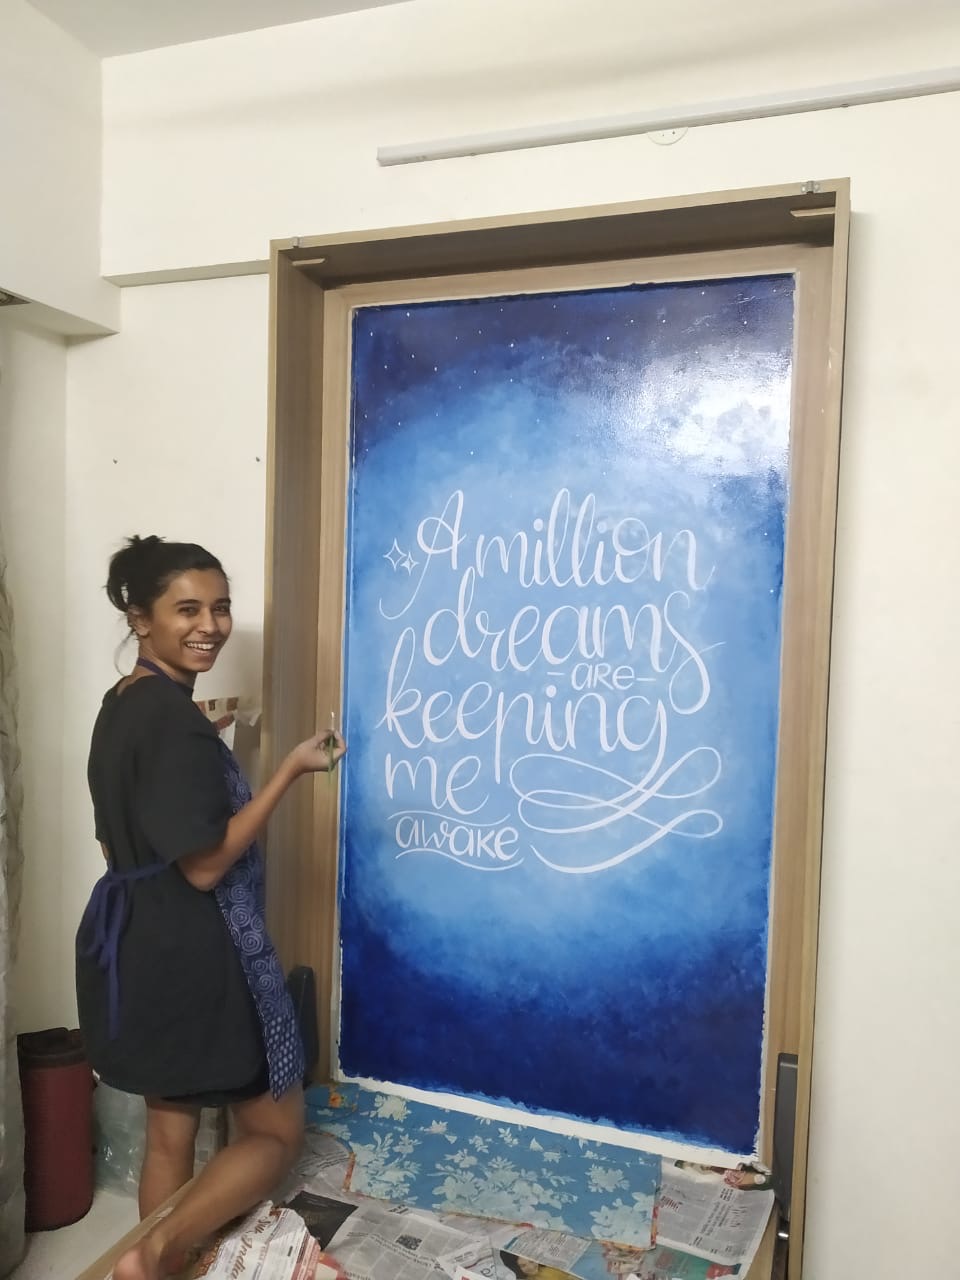 A million
dreams
- are -
keeping
me
awake
India